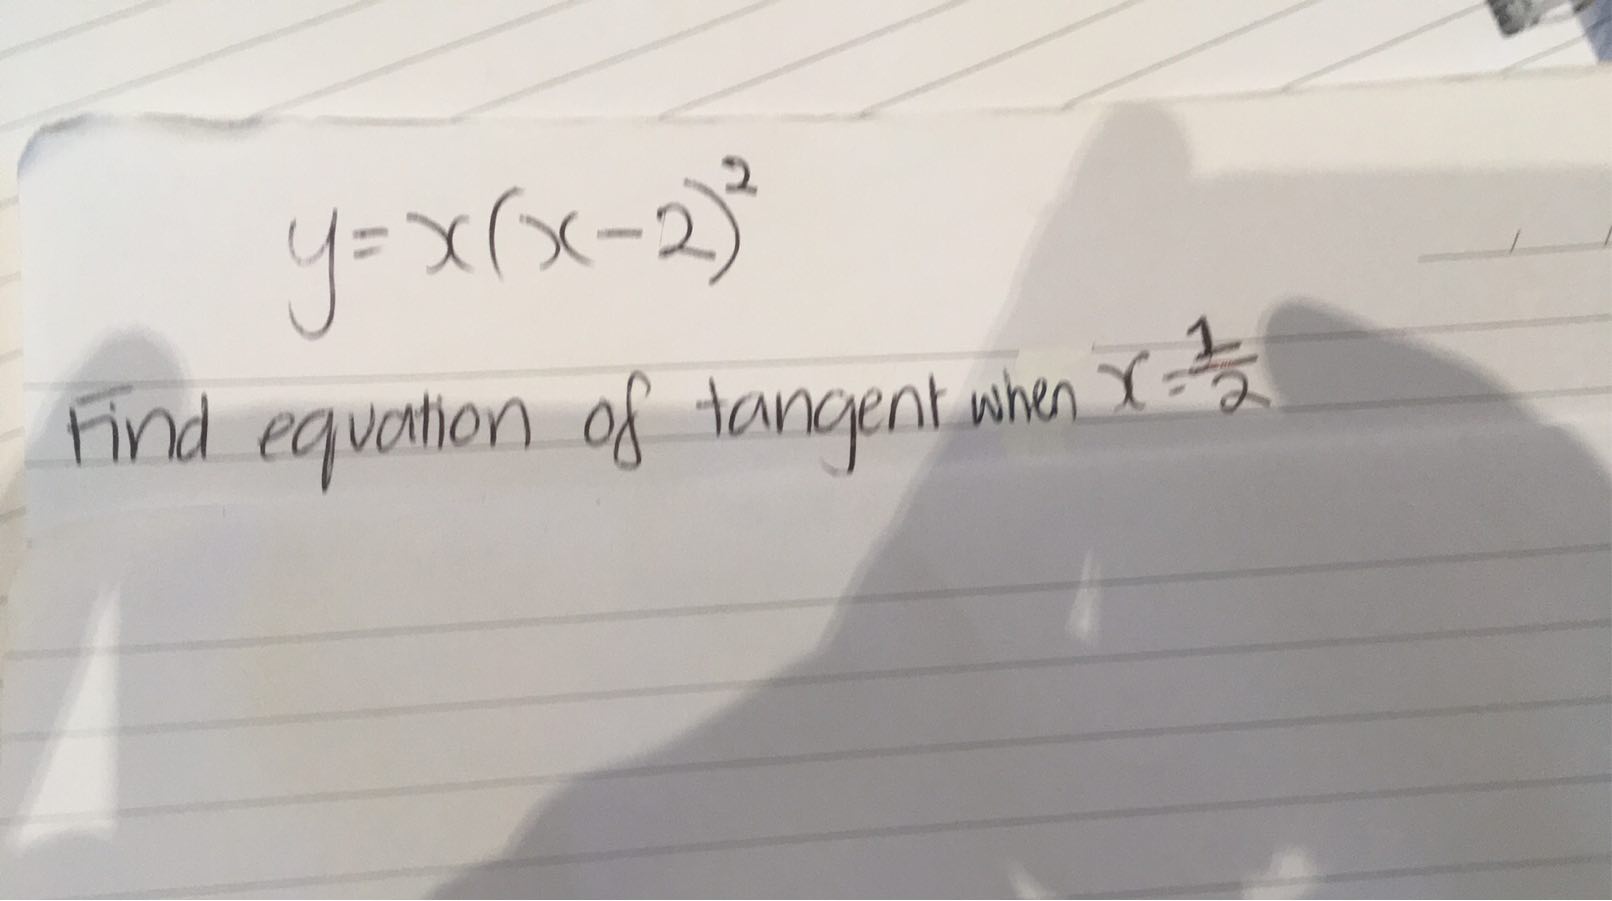 y=x(x-2)²
Find equation of tangent when x=1/2